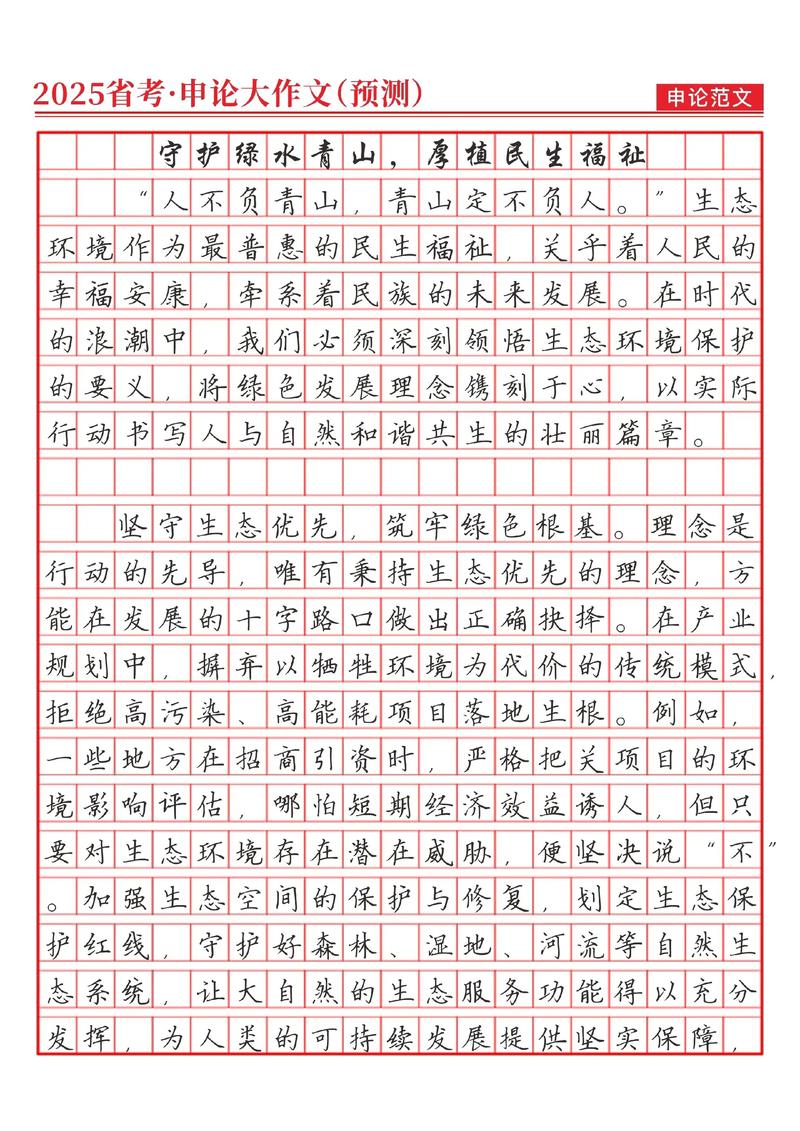 2025省考·申论大作文(预测)
申论范文
守护绿水青山，厚植民生福祉
“人不负青山，青山定不负人。”生态
环境作为最普惠的民生福祉，关乎着人民的
幸福安康，牵系着民族的未来发展。在时代
的浪潮中，我们必须深刻领悟生态环境保护
的要义，将绿色发展理念镌刻于心，以实际
行动书写人与自然和谐共生的壮丽篇章。
坚守生态优先，筑牢绿色根基。理念是
行动的先导，唯有秉持生态优先的理念，方
能在发展的十字路口做出正确抉择。在产业
规划中，摒弃以牺牲环境为代价的传统模式，
拒绝高污染、高能耗项目落地生根。例如，
一些地方在招商引资时，严格把关项目的环
境影响评估，哪怕短期经济效益诱人，但只
要对生态环境存在潜在威胁，便坚决说“不”
。加强生态空间的保护与修复，划定生态保
护红线，守护好森林、湿地、河流等自然生
态系统，让大自然的生态服务功能得以充分
发挥，为人类的可持续发展提供坚实保障，